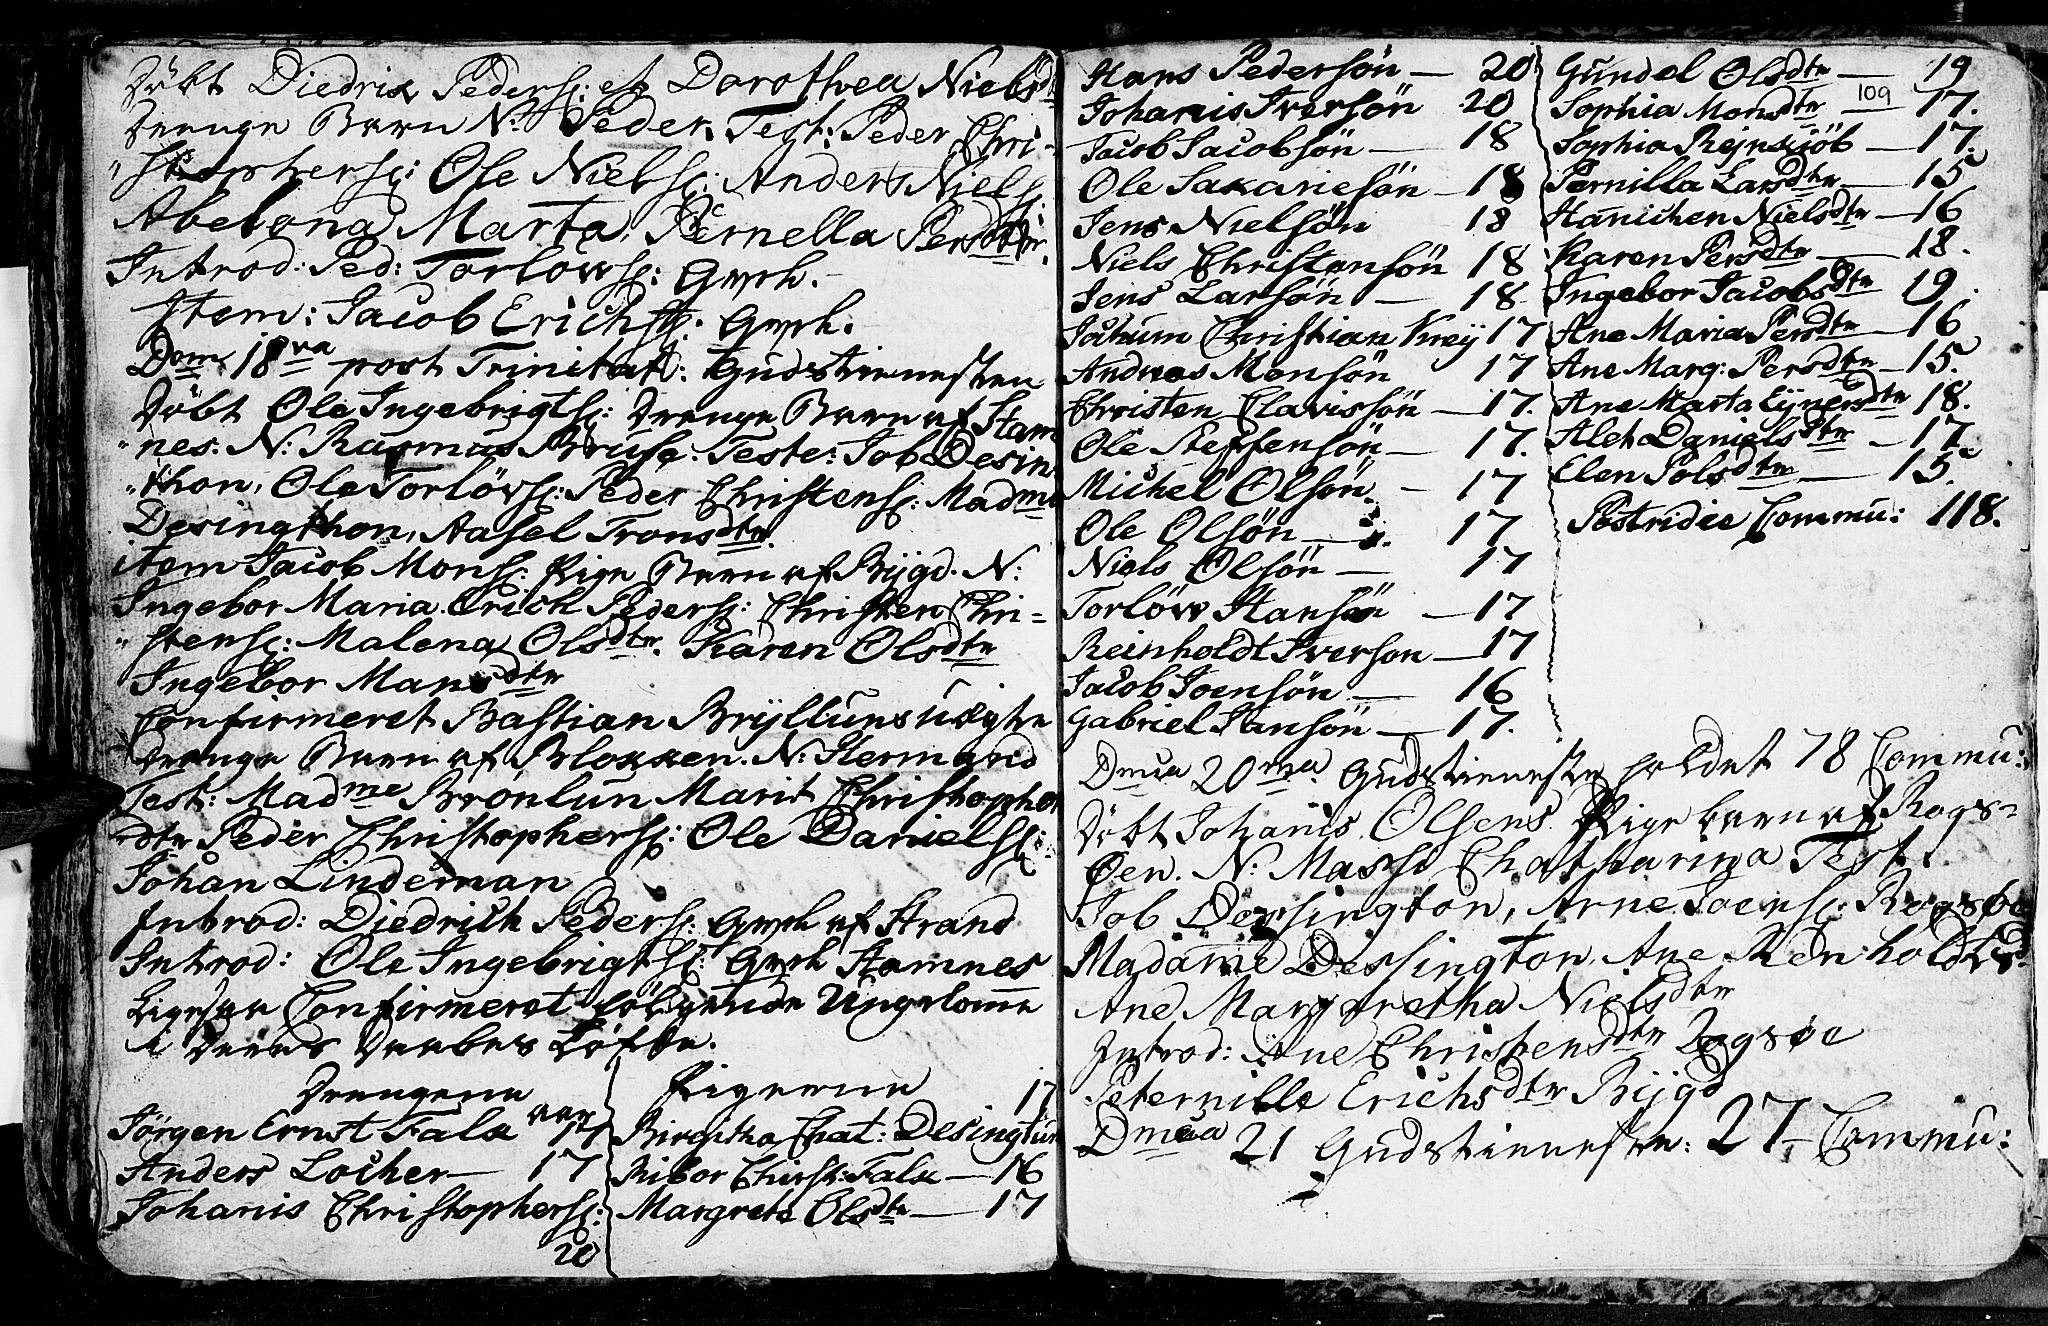 Döbt Diedrix Peders: et Dorothea Nielsdtr
Drenge Barn N: Peder. Test: Peder Chri-
"stophers: Ole Niels: Anders Niels:
Abelona, Marta, Pernella Persdtr.
Introd: Ped: Torlöws: Gysh.
Item: Jacob Erichs: Gysh.
Dom: 18va post Trinitat: Gudstienesten
Döbt Ole Ingebrigts: Drenge Barn af Stam
"nes. N: Rasmus Bruse. Teste: Job Desing
"thon, Ole Torlövs: Peder Christens: Madme
Desingthon, Aasel Tronsdtr.
item Jacob Mons: Pige Barn af Bÿgd. N:
Ingebor Maria. Erich Peders: Christen Chri=
"stens: Malena Olsdtr. Karen Olsdtr
Ingebor Mansdtr
Confirmeret Bastian Brÿlluns uægte
Drenge Barn af Bloxxen. N: Hermand
Test: Madme Brönlun Marit Christophor
dtr Peder Christophers: Ole Daniels:
Johan Lindeman
Introd: Diedrich Peders: Gysh af Strand
Introd: Ole Ingebrigts: Gysh Stamnes
Ligesaa Confirmeret fölgende Ungdome
i Deres Daabes Löfte.
Drengene
aar
Jörgen Ernst Falx 17
Anders Locher — 17
Johanis Christophers:
20
Pigerne
17
Birgitha Chat: Desingtun
Ribor Christ: Falx — 16
Margrete Olsdtr — 17
Hans Pedersön — 20
Johanis Iversön 20
Jacob Jacobsön — 18
Ole Saxariesön — 18
Jens Nielsön 18
Niels Christensön 18
Jens Larsön — 18
Jochum Christian Kreÿ 17
Andreas Monsön 17
Christen Clavissön — 17.
Ole Steffensön — 17.
Michel Olsön. — 17
Ole Olsön — 17
Niels Olsön — 17
Torlöw Hansön — 17
Reinholdt Iverson — 17
Jacob Joensön — 16
Gabriel Hansön — 17.
Gundel Olsdtr — 19
109
Sophia Monsdtr — 17.
Sophia Rejnsiöb — 17.
Pernilla Larsdtr — 15
Hanichen Nielsdtr — 16
Karen Persdtr — 18.
Ingebor Jacobsdtr 19.
Ane Maria Persdtr — 16
Ane Marg: Persdtr — 15.
Ane Marta Eÿnersdtr 18.
Alet Danielsdtr — 17
Elen Polsdtr — 15.
Postridie Commu: 118.
Dmca 20ma. Gudstieneste holdet 78 Commu:
Döbt Johanis Olsens Pige barn af Rogs=
Öen. N: Masse Chatharina Test:
Job Dessington, Arne Joens: Rogsöe
Madame Dessington, Ane Renholdtsd
Ane Margretha Nielsdtr
Introd: Ane Christensdtr Rogsöe
Peternille Erichsdtr Bÿgd
Dmca 21 Gudstienesten: 27 — Commu: